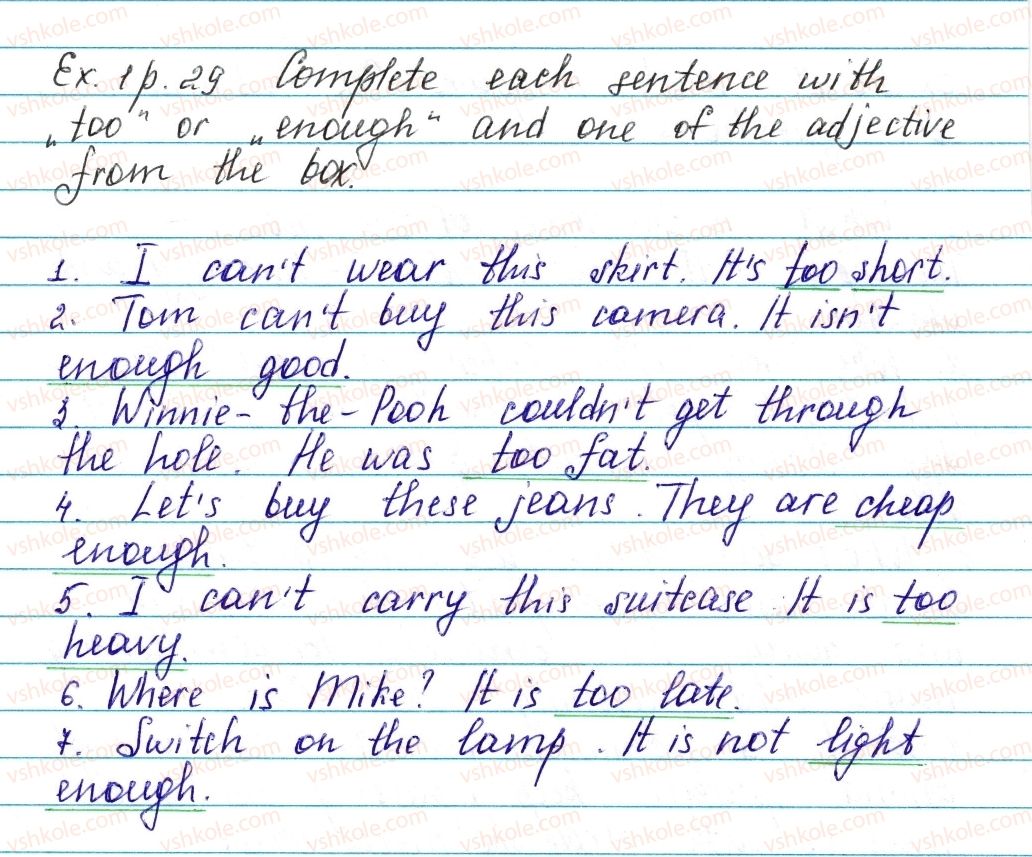 Ex. 1 p. 29 Complete each sentence with
„too" or „enough" and one of the adjective
from the box.
1. I can't wear this skirt. It's too short.
2. Tom can't buy this camera. It isn't
enough good.
3. Winnie-the-Pooh couldn't get through
the hole. He was too fat.
4. Let's buy these jeans. They are cheap
enough.
5. I can't carry this suitcase. It is too
heavy.
6. Where is Mike? It is too late.
7. Switch on the lamp. It is not light
enough.
vshkole.com